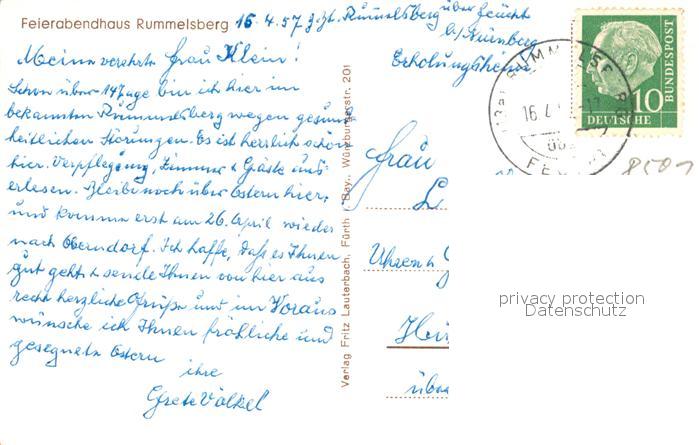 Feierabendhaus Rummelsberg
16.4.57 z.Zt. Rummelsberg über Feucht
b/ Nürnberg
Erholungsheim
Meine verehrte Frau Klein!
Schon über 14 Tage bin ich hier im
bekannten Rummelsberg wegen gesund
heitlichen Störungen. Es ist herrlich schön
hier. Verpflegung, Zimmer & Gäste aus-
erlesen. Bleibe noch über Ostern hier,
und komme erst am 26. April wieder
nach Oberndorf. Ich hoffe, daß es Ihnen
gut geht & sende Ihnen von hier aus
recht herzliche Grüße und im Voraus
wünsche ich Ihnen fröhliche und
gesegnete Ostern
ihre
Grete Völkel
Verlag Fritz Lauterbach, Fürth i. Bay., Würzburgerstr. 201
Frau
Uhren &
über
16.4.
10
DEUTSCHE
BUNDESPOST
8501
privacy protection
Datenschutz